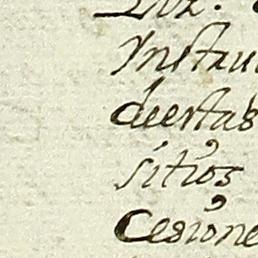 Instru
deestas
sitios
Cesione